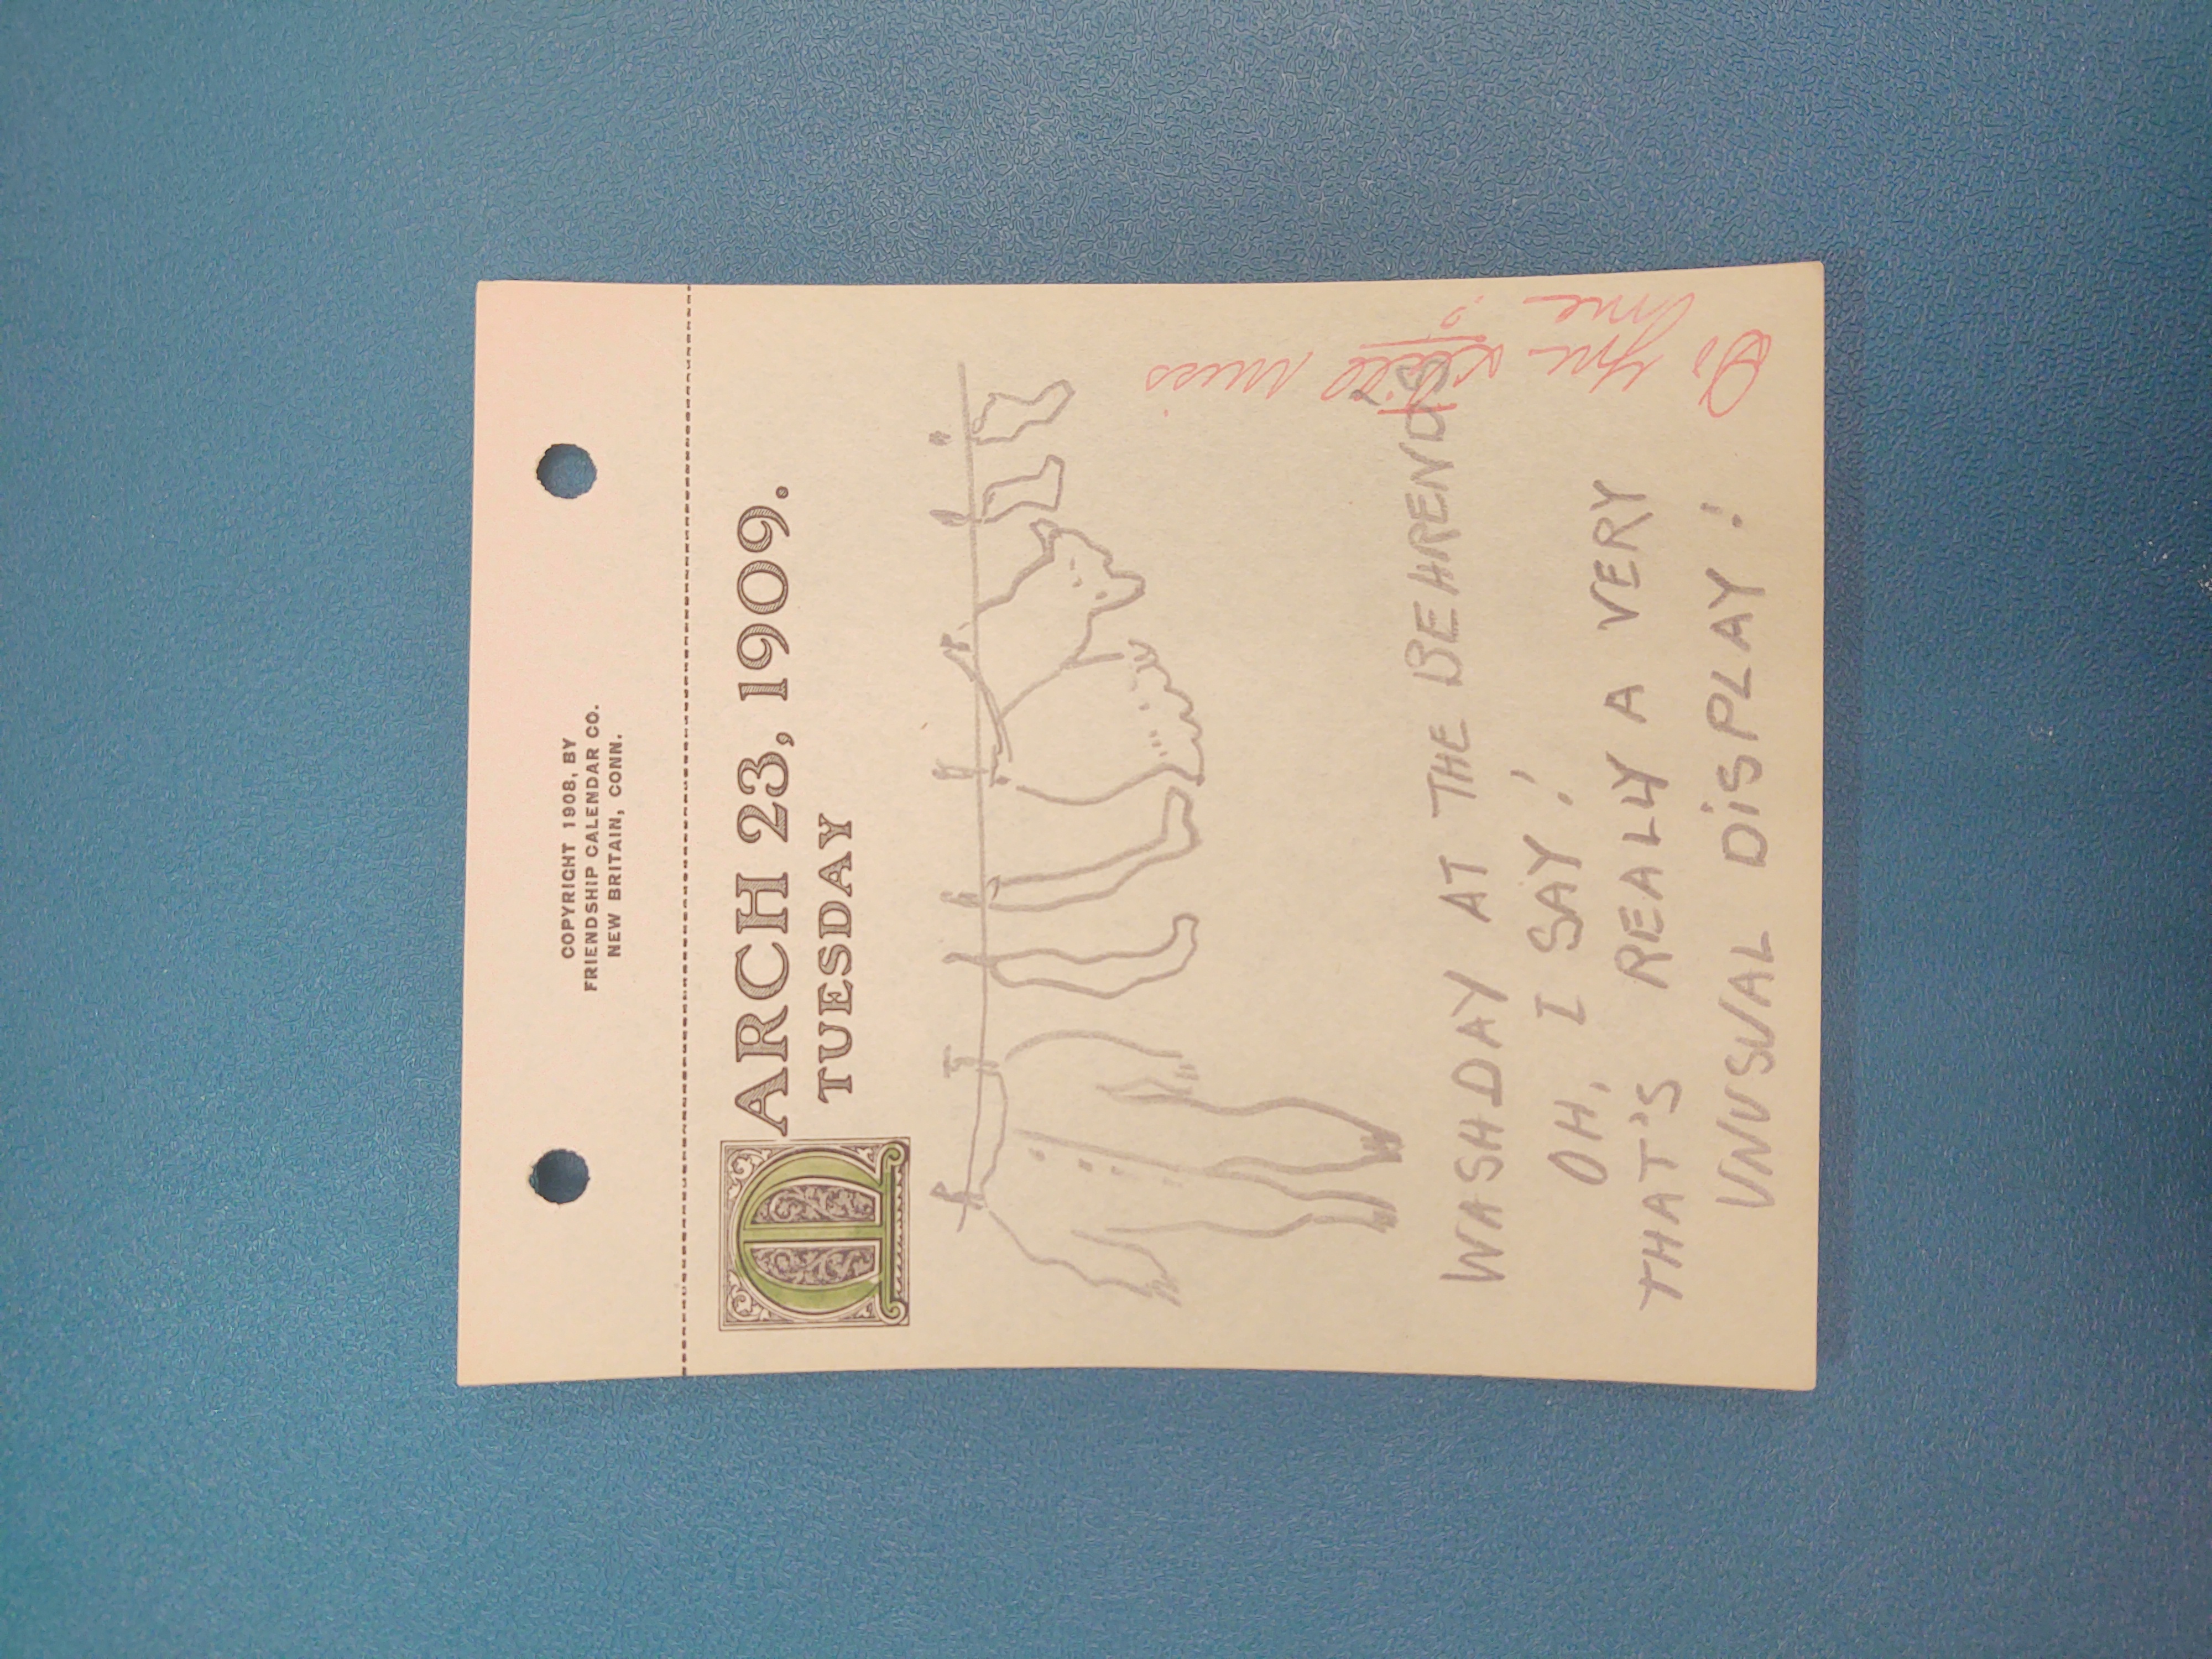 COPYRIGHT 1908, BY
FRIENDSHIP CALENDAR CO.
NEW BRITAIN, CONN.
MARCH 23, 1909.
TUESDAY
WASHDAY AT THE BEHRENDS
OH, I SAY!
THAT'S REALLY A VERY
UNUSUAL DISPLAY!
Do you still miss
me?